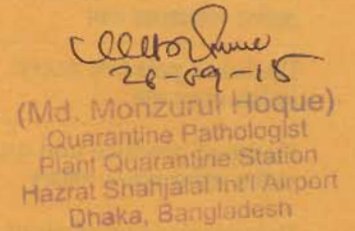 28-09-15
(Md. Monzurul Hoque)
Quarantine Pathologist
Plant Quarantine Station
Hazrat Shahjalal Int'l Airport
Dhaka, Bangladesh